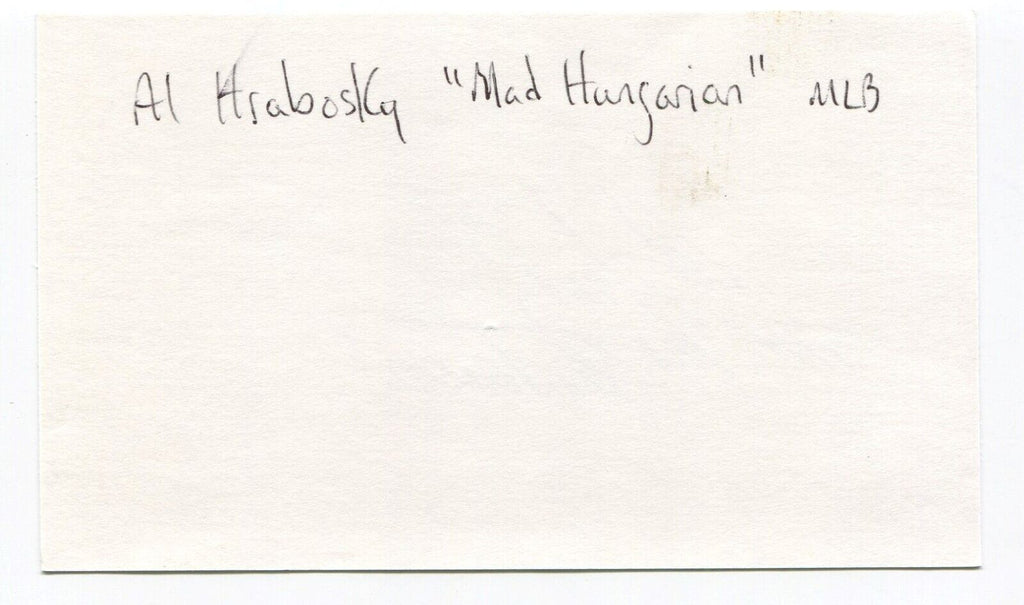 Al Hrabosky "Mad Hungarian" MLB